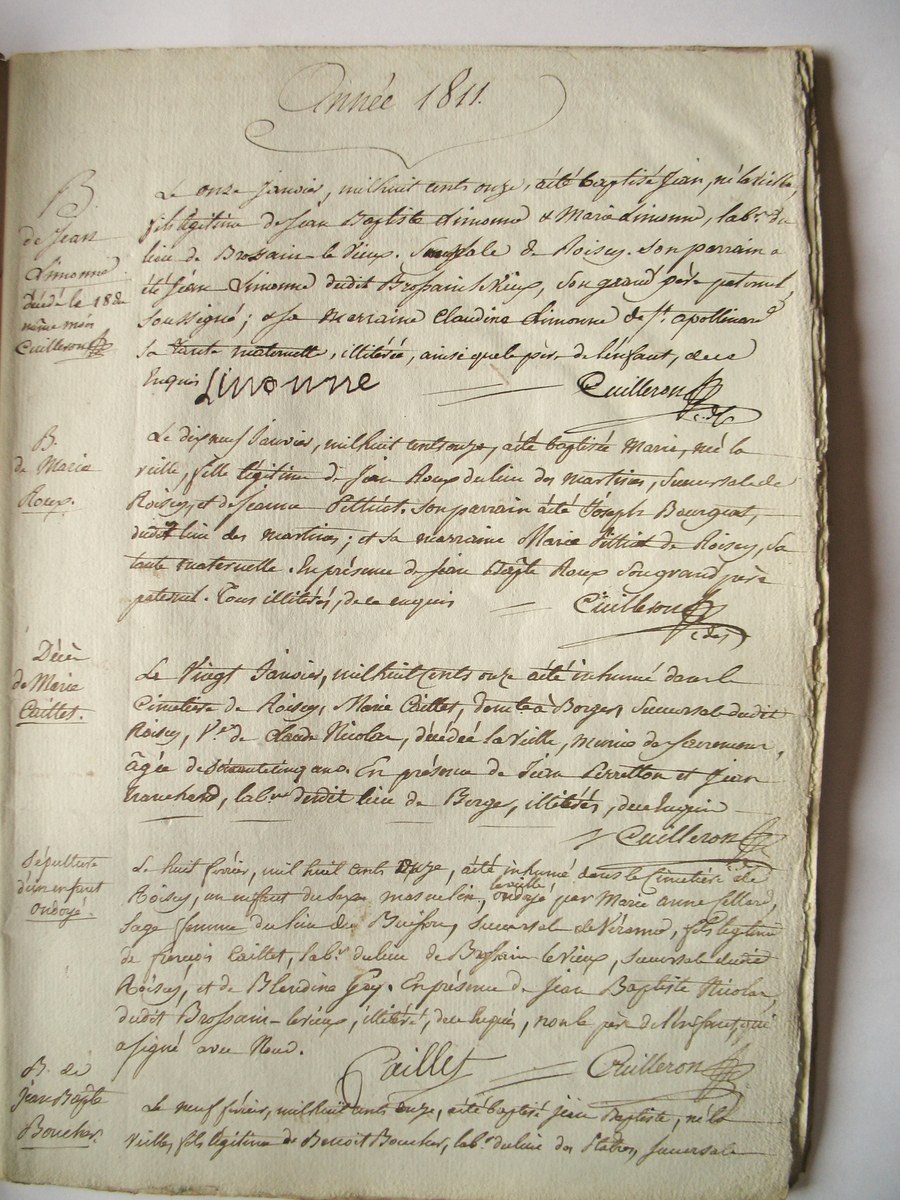 Année 1811.
B.
de Jean
Limonne
décédé le 18 du
même mois
Cuilleron
Le onze Janvier, mil huit cents onze, a été baptisé Jean, né la veille,
fils légitime de Jean Baptiste Limonne & Marie Limonne, lab.r du
lieu de Brossain-le Vieux. Succursale de Roisey. Son parrain a
été Jean Limonne dudit Brossain le Vieux, Son grand père paternel,
Soussigné; & Sa marraine Claudine Limonne de St. apollinard
Sa tante maternelle, illitérée, ainsi que le père de l'enfant, de ce
Enquis Limonne Cuilleron
B.
de Marie
Roux.
Le dix neuf Janvier, mil huit cents onze, a été baptisée Marie, née la
veille, fille légitime de Jean Roux du lieu des martines, Succursale de
Roisey, et de Jeanne Pitiot. Son parrain a été Joseph Bourgeat,
dudit lieu des martines; et Sa marraine Marie Pitiot de Roisey, Sa
tante maternelle. En présence de Jean Bapte Roux Son grand père
paternel. Tous illitérés, de ce enquis Cuilleron
Décès
de Marie
Caillet.
Le Vingt Janvier, mil huit cents onze a été inhumé dans le
Cimetière de Roisey, Marie Caillet, demt. à Borges, Succursale dudit
Roisey, V.ve de Claude Nicolas, décédée la veille, munie des Sacremens,
âgée de Soixante cinq ans. En présence de Jean Perretton et Jean
marchand, lab.rs dudit lieu de Borge, illitérés, de ce Enquis
Cuilleron
Sépulture
d'un enfant
Ondoyé.
Le huit février, mil huit cents onze, a été inhumé dans le Cimetière de
Roisey, un enfant du Sexe masculin, ondoyé la veille par Marie anne
Sage femme du lieu du Buisson, Succursale de Véranne, fils légitime
de françois Caillet, lab.r du lieu de Brossain le vieux, Succursale dudit
Roisey, et de Blandine Gay. En présence de Jean Baptiste Nicolas
dudit Brossain-le vieux, illitéré, de ce Enquis, non le père de l'enfant, qui
a signé avec Nous.
Caillet Cuilleron
B. de
Jean Bapte
Boucher.
Le neuf février, mil huit cents onze, a été baptisé Jean Baptiste, né la
veille, fils légitime de Benoît Boucher, lab.r du lieu des Succursale